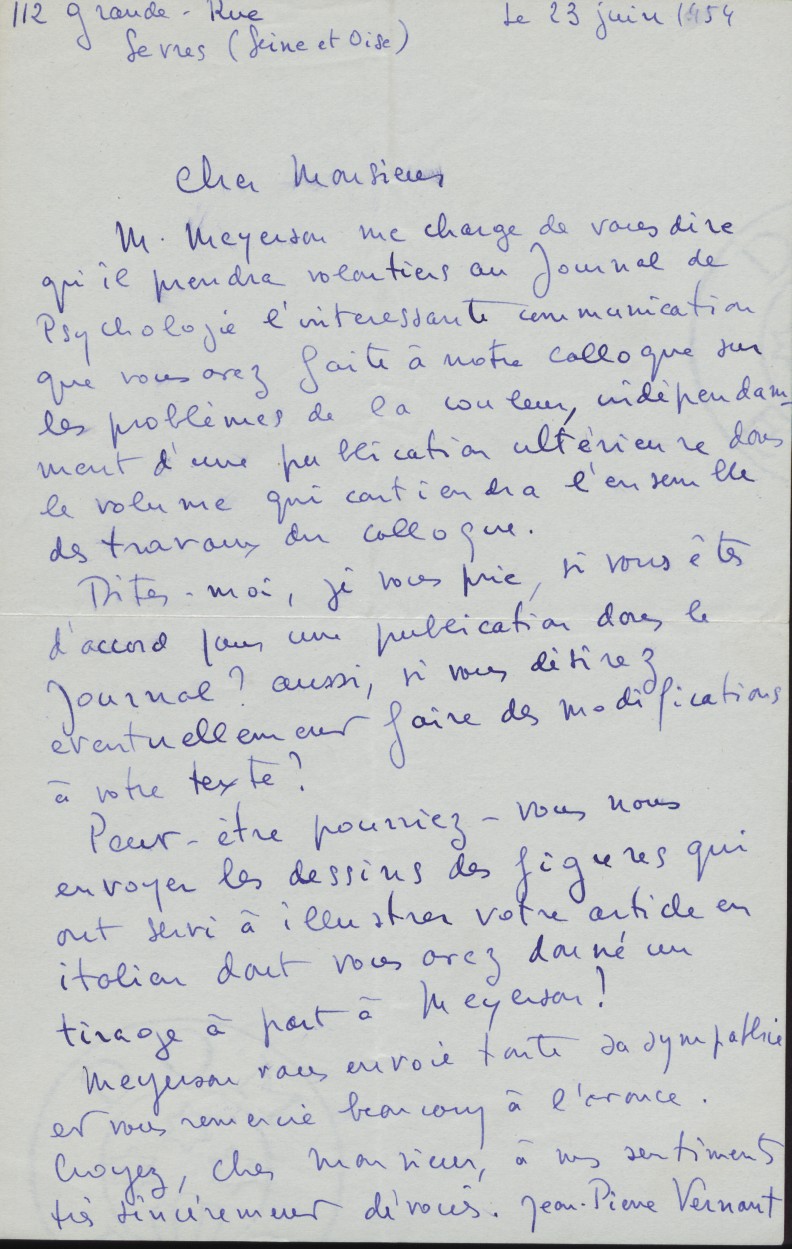 112 Grande-Rue
Sevres (Seine et Oise)
Le 23 juin 1954
Cher Monsieur
M. Meyerson me charge de vous dire
qu'il prendra volontiers au Journal de
Psychologie l'interessante communication
que vous avez faite à notre colloque sur
les problèmes de la couleur, indépendam-
ment d'une publication ultérieure dans
le volume qui contiendra l'ensemble
des travaux du colloque.
Dites-moi, je vous prie, si vous êtes
d'accord pour une publication dans le
Journal? aussi, si vous désirez
eventuellement faire des modifications
à votre texte?
Peut-être pourriez-vous nous
envoyer les dessins des figures qui
ont servi à illustrer votre article en
italien dont vous avez donné un
tirage à part à Meyerson!
Meyerson vous envoie toute sa sympathie
et vous remercie beaucoup à l'avance.
Croyez, cher monsieur, à mes sentiments
très sincérement dévoués. Jean-Pierre Vernant